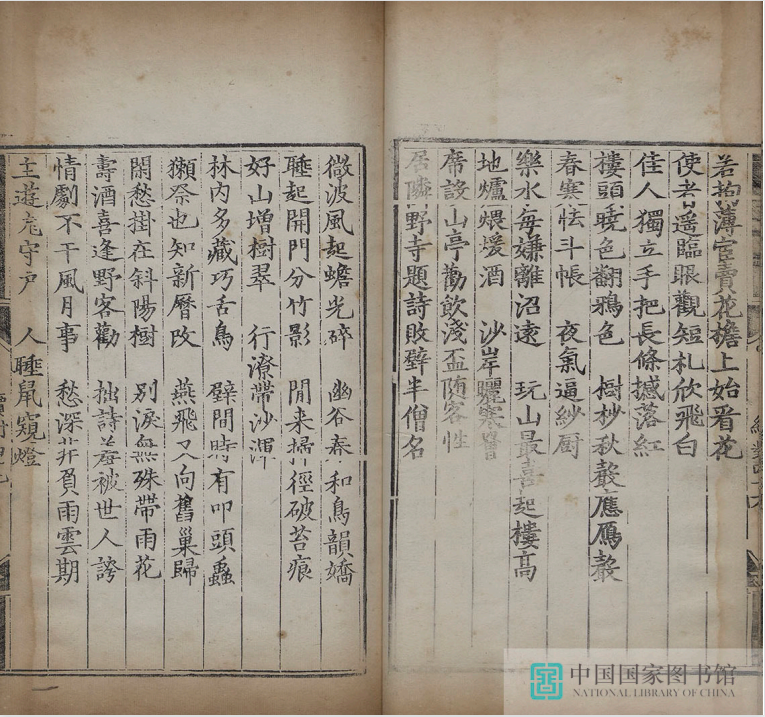 若拘薄宦賣花擔上始看花
使者遥臨眼觀短札欣飛白
佳人獨立手把長條撼落紅
樓頭曉色翻鴉色 樹杪秋聲應鴈聲
春寒怯斗帳 夜氣逼紗厨
樂水每嫌離沼遠 玩山最喜起樓高
地爐煨煖酒 沙岸曬寒罾
席設山亭勸飲淺盃随客性
居隣野寺題詩敗壁半僧名
微波風起蟾光碎 幽谷春和鳥韻嬌
睡起開門分竹影 閒来掃徑破苔痕
好山增樹翠 行潦帶沙渾
林内多藏巧舌鳥 壁間時有叩頭蟲
獺祭也知新曆改 燕飛又向舊巢歸
閑愁掛在斜陽樹 别淚無殊帶雨花
壽酒喜逢野客勸 拙詩羞被世人誇
情劇不干風月事 愁深非負雨雲期
主遊尨守户 人睡鼠窺燈
中国国家图书馆
NATIONAL LIBRARY OF CHINA